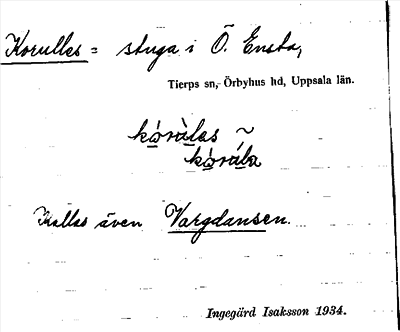 Korulles = stuga i Ö. Ensta,
Tierps sn, Örbyhus hd, Uppsala län.
kòrùlas ~
kòrúla
Kallas även Vargdansen.
Ingegärd Isaksson 1934.